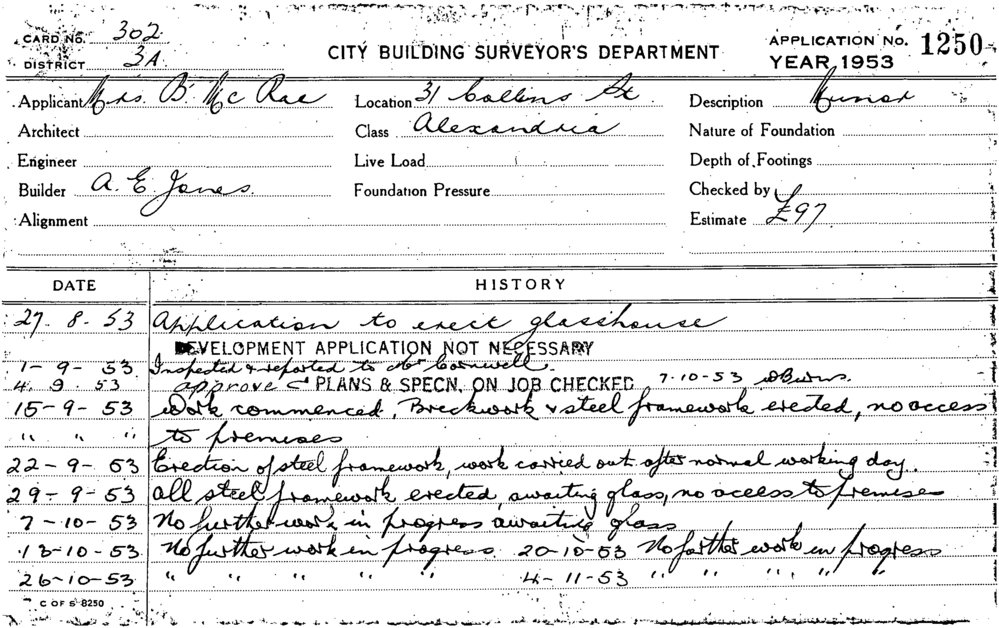 CARD NO. 302
DISTRICT 3A
CITY BUILDING SURVEYOR'S DEPARTMENT
APPLICATION No. 1250
YEAR 1953
Applicant Mrs. B. McRae
Location 31 Collins St
Description Minor
Architect
Class Alexandria
Nature of Foundation
Engineer
Live Load
Depth of Footings
Builder A. E. Jones.
Foundation Pressure
Checked by
Alignment
Estimate £97
DATE HISTORY
27. 8. 53 Application to erect glasshouse
DEVELOPMENT APPLICATION NOT NECESSARY
1-9-53 Inspected & reported to Mr Cornwell.
4. 9. 53 approve PLANS & SPECN. ON JOB CHECKED 7-10-53
15-9-53 Work commenced, Breckwork & steel framework erected, no access
" " " to premises
22-9-53 Erection of steel framework, work carried out after normal working day.
29-9-53 all steel framework erected awaiting glass, no access to premises
7-10-53 No further work in progress awaiting glass
13-10-53 No further work in progress 20-10-53 No further work in progress
26-10-53 " " " " " 4-11-53 " " " " "
C OF S 8250